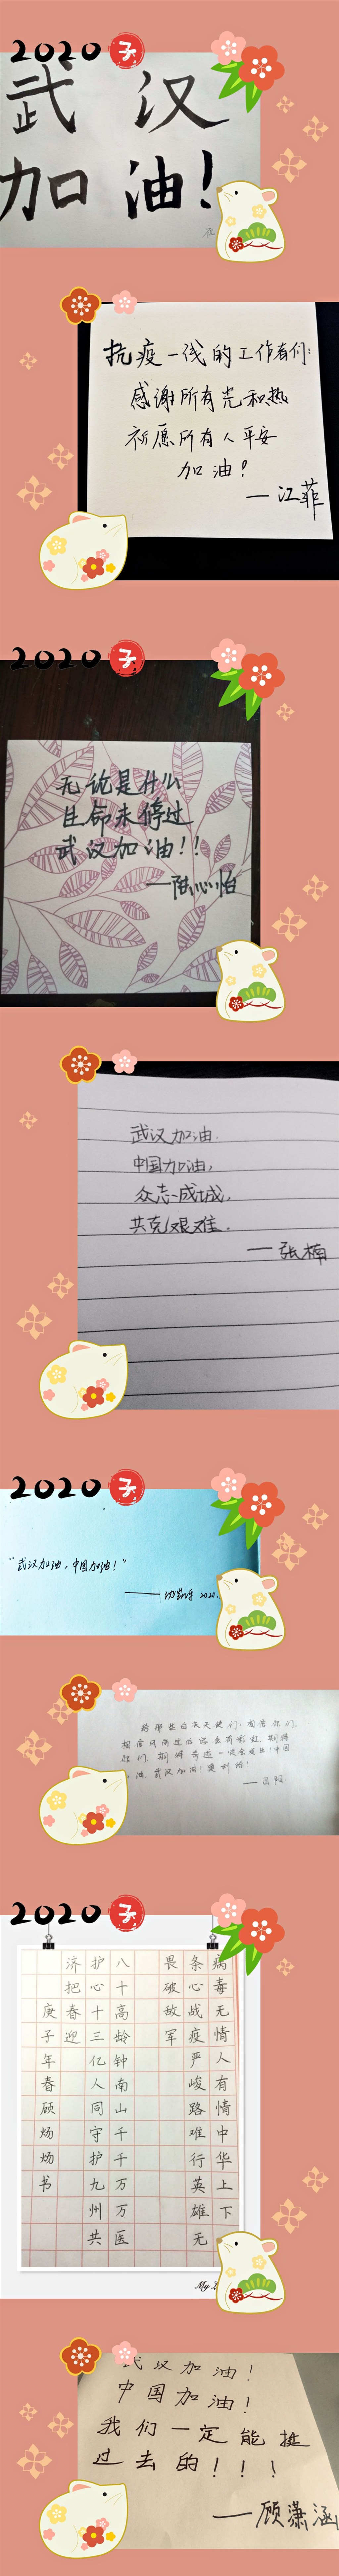 2020 子
武 汉
加 油!
抗疫一线的工作者们:
感谢所有光和热
祈愿所有人平安
加油!
—江菲
2020 子
无论是什么
生命未停过
武汉加油!!
—陆心怡
武汉加油,
中国加油,
众志成城,
共克艰难.
—张楠
2020 子
“武汉加油,中国加油!”
2020.
致那些白衣天使们:相信你们,
相信风雨过后路会有彩虹,期待
你们,期待奇迹一次会发生!中国
油,武汉加油!
2020 子
病毒无情人有情中华上下
条心战疫严峻路难行英雄无
畏破敌军
八十高龄钟南山千千万万医
护心十三亿人同守护九州共
济把春迎
庚子年春顾炀炀书
武汉加油!
中国加油!
我们一定能挺
过去的!!!
—顾潇涵